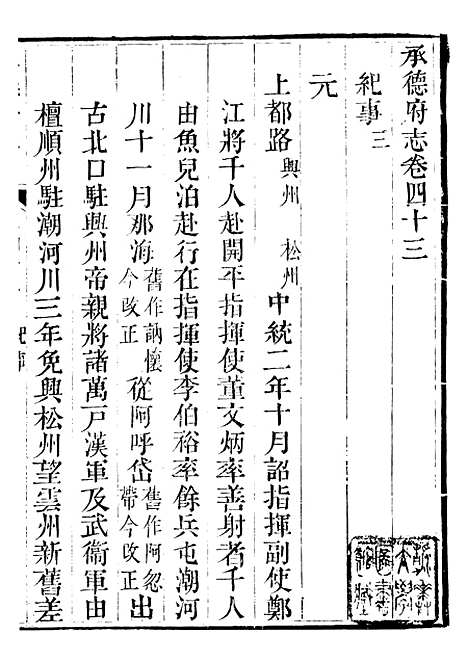 承德府志卷四十三
紀事三
元
上都路興州松州中統二年十月詔指揮副使鄭
江將千人赴開平指揮使董文炳率善射者千人
由魚兒泊赴行在指揮使李伯裕率餘兵屯潮河
川十一月那海舊作訥懷今改正從阿呼岱舊作阿忽帶今改正出
古北口駐興州帝親將諸萬戸漢軍及武衞軍由
檀順州駐潮河川三年免興松州望雲州新舊差
紀事